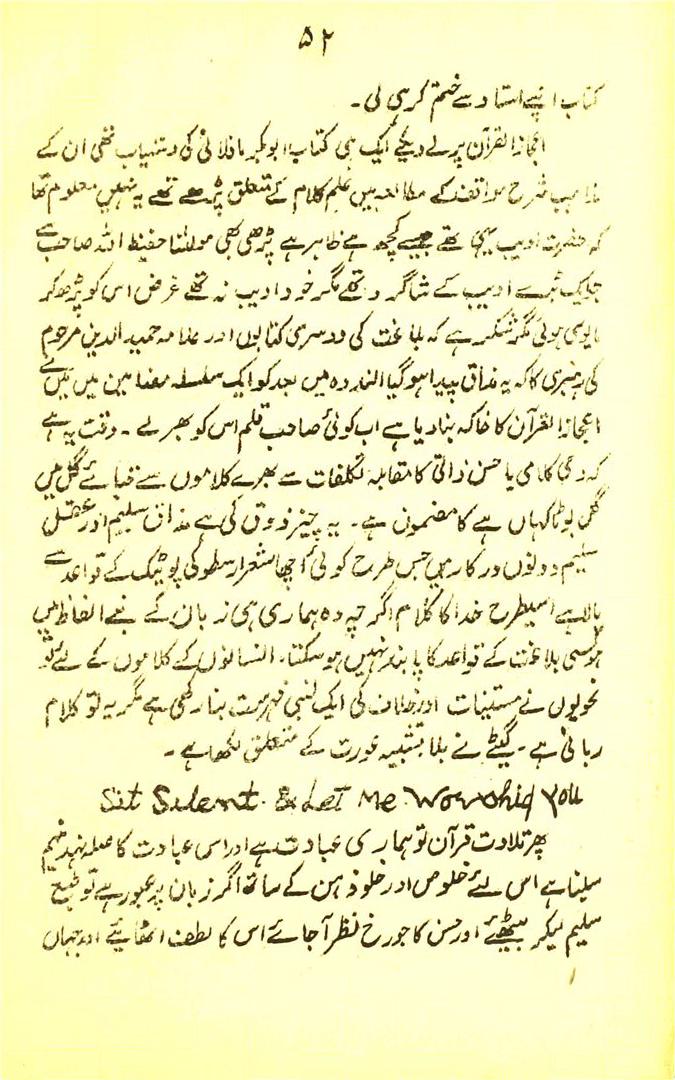 ۵۲
کتاب اپنے استاد سے ختم کر ہی لی۔
اعجاز القرآن پر لے دیکے ایک ہی کتاب ابوبکر باقلانی کی دستیاب تھی ان کے
شرح مواقف کے مطالعہ میں علم کلام کے متعلق پڑھے تھے یہ نہیں معلوم تھا
کہ حضرت ادیب بھی تھے جیسے کچھ ہے ظاہر ہے پڑھی بھی مولٰنا حفیظ اللہ صاحب سے
جو ایک بڑے ادیب کے شاگرد تھے مگر خود ادیب نہ تھے غرض اس کو پڑھ کر
مایوسی ہوئی مگر شکر ہے کہ بلاغت کی دوسری کتابوں اور علامہ حمید الدین مرحوم
کی رہبری کا کہ یہ مذاق پیدا ہو گیا الندوہ میں بعد کو ایک سلسلہ مضامین میں میں نے
اعجاز القرآن کا خاکہ بنا دیا ہے اب کوئی صاحب قلم اس کو بھر لے۔ دقت یہ ہے
کہ کلامی یا حسن ذاتی کا مقابلہ تکلفات سے بھرے کلاموں سے قبائے گل میں
گل بوٹا کہاں ہے کا مضمون ہے۔ یہ چیز ذوق کی ہے مذاق سلیم اور عقل
سلیم دونوں درکار ہیں جس طرح کوئی اچھا شعر ارسطو کی پوئٹک کے قواعد سے
بالا ہے اسیطرح خدا کا کلام اگرچہ وہ ہماری ہی زبان کے بنے الفاظ میں
ہو کسی بلاغت کے قواعد کا پابند نہیں ہو سکتا۔ انسانوں کے کلاموں کے لئے تو
نحویوں نے مستثنیات اور کی ایک لنبی فہرست بنا رکھی ہے مگر یہ تو کلام
ربانی ہے۔ گیٹے نے بلا تشبیہ عورت کے متعلق لکھا ہے۔
Sit Silent & Let Me Worship You
پھر تلاوت قرآن تو ہماری عبادت ہے اور اس عبادت کا صلہ ہمیں
لینا ہے اس لئے خلوص اور خلو ذہن کے ساتھ اگر زبان پر عبور ہے تو طبع
سلیم لیکر بیٹھئے اور حسن کا جو رخ نظر آجائے اس کا لطف اٹھایئے اور جہاں